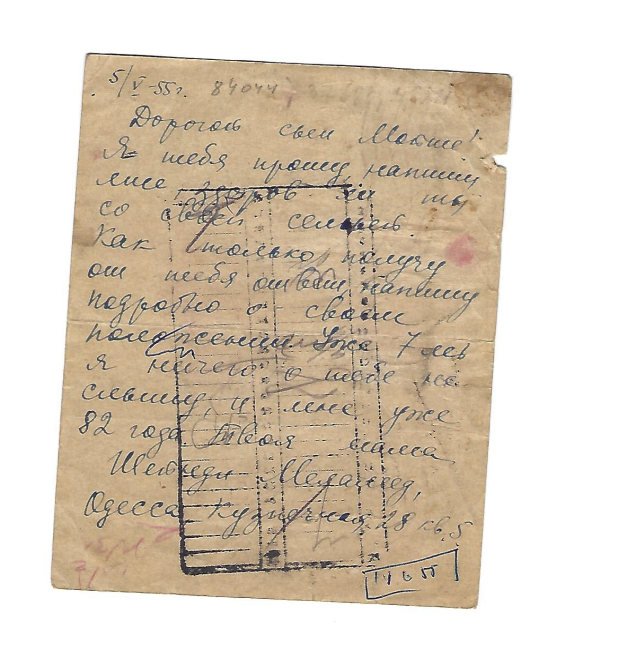 5/V-55г. 84044
Дорогой сын Мотше!
Я тебя прошу, напиши
мне, здоров ли ты
со своей семьей.
Как только получу
от тебя ответ, напишу
подробно о своем
положении. Уже 7 лет
я ничего о тебе не
слышу, и мне уже
82 года. Твоя мама
Одесса Кузнечная, 28 кв. 5